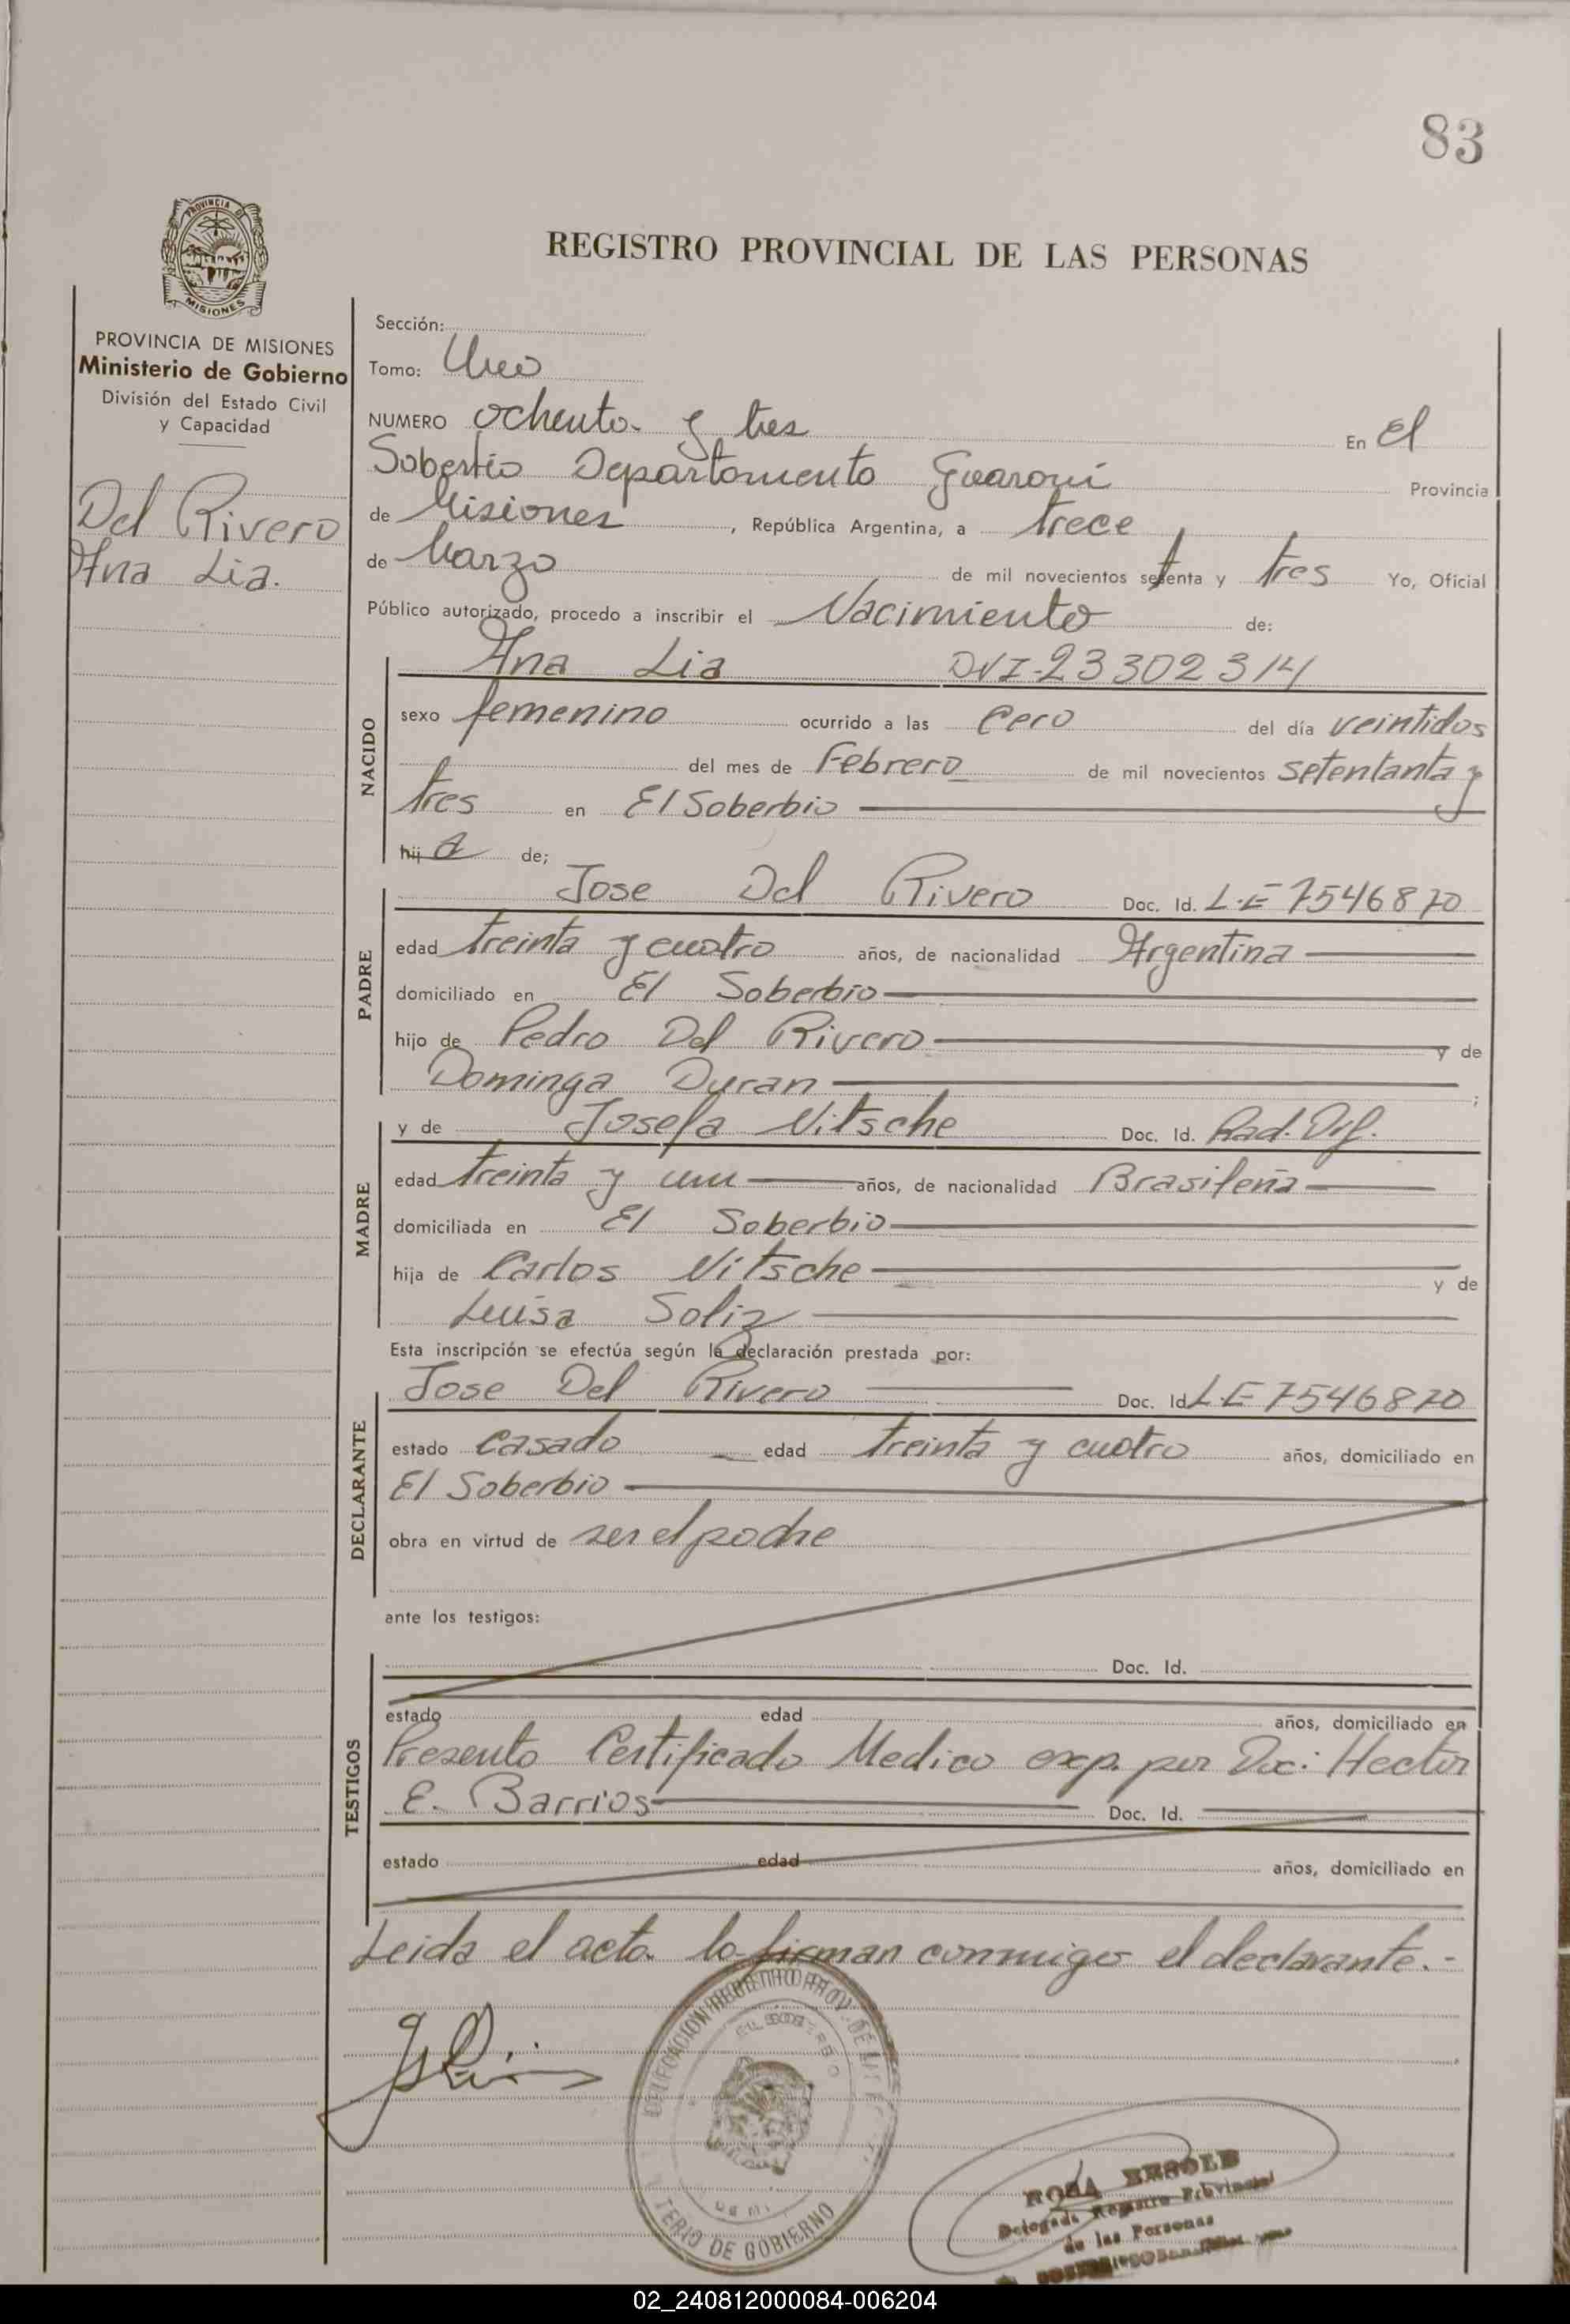 83
PROVINCIA DE
MISIONES
REGISTRO PROVINCIAL DE LAS PERSONAS
PROVINCIA DE MISIONES
Ministerio de Gobierno
División del Estado Civil
y Capacidad
Del Rivero
Ana Lia.
Sección:
Tomo: Uno
NUMERO ochenta y tres En El
Soberbio Departamento Guaraní Provincia
de Misiones, República Argentina, a trece
de Marzo de mil novecientos setenta y tres Yo, Oficial
Público autorizado, procedo a inscribir el Nacimiento de:
NACIDO
Ana Lia DNI-23302314
sexo femenino ocurrido a las Cero del día veintidos
del mes de Febrero de mil novecientos setentanta y
tres en El Soberbio
hij a de;
PADRE
Jose Del Rivero Doc. Id. L.E 7546870
edad treinta y cuatro años, de nacionalidad Argentina
domiciliado en El Soberbio
hijo de Pedro Del Rivero y de
Dominga Duran ;
MADRE
y de Josefa Nitsche Doc. Id.
edad treinta y un años, de nacionalidad Brasileña
domiciliada en El Soberbio
hija de Carlos Nitsche y de
Luisa Soliz
Esta inscripción se efectúa según la declaración prestada por:
DECLARANTE
Jose Del Rivero Doc. Id L.E 7546870
estado Casado edad treinta y cuatro años, domiciliado en
El Soberbio
obra en virtud de ser el padre
ante los testigos:
TESTIGOS
Doc. Id.
estado edad años, domiciliado en
Presento Certificado Medico exp. por Doc: Hector
E. Barrios Doc. Id.
estado edad años, domiciliado en
Leida el acta lo firman conmigo el declarante.-
EL SOBERBIO
TERIO DE GOBIERNO
ROSA
Delegada Registro Provincial
de las Personas
02_240812000084-006204